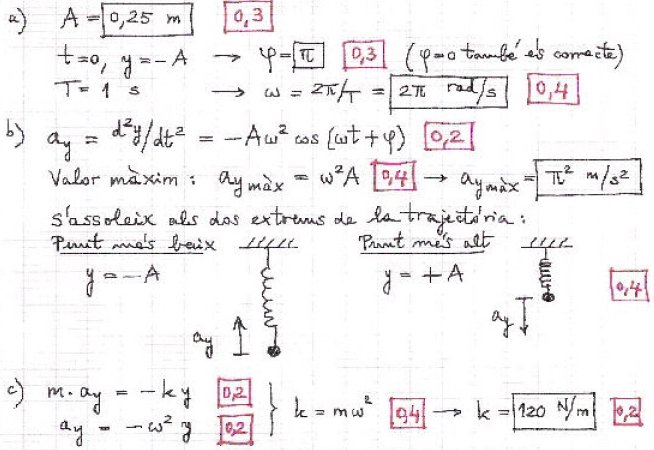 a) A = 0,25 m 0,3
t=0, y=-A → φ=π 0,3 (φ=0 també és correcte)
T= 1 s → ω = 2π/T = 2π rad/s 0,4
b) ay = d²y/dt² = -Aω² cos (ωt+φ) 0,2
Valor màxim: ay màx = ω²A 0,4 → ay màx = π² m/s²
s'assoleix als dos extrems de la trajectòria:
Punt més baix Punt més alt
y = -A y = +A 0,4
ay ay
c) m·ay = -ky 0,2
ay = -ω²y 0,2 } k = mω² 0,4 → k = 120 N/m 0,2